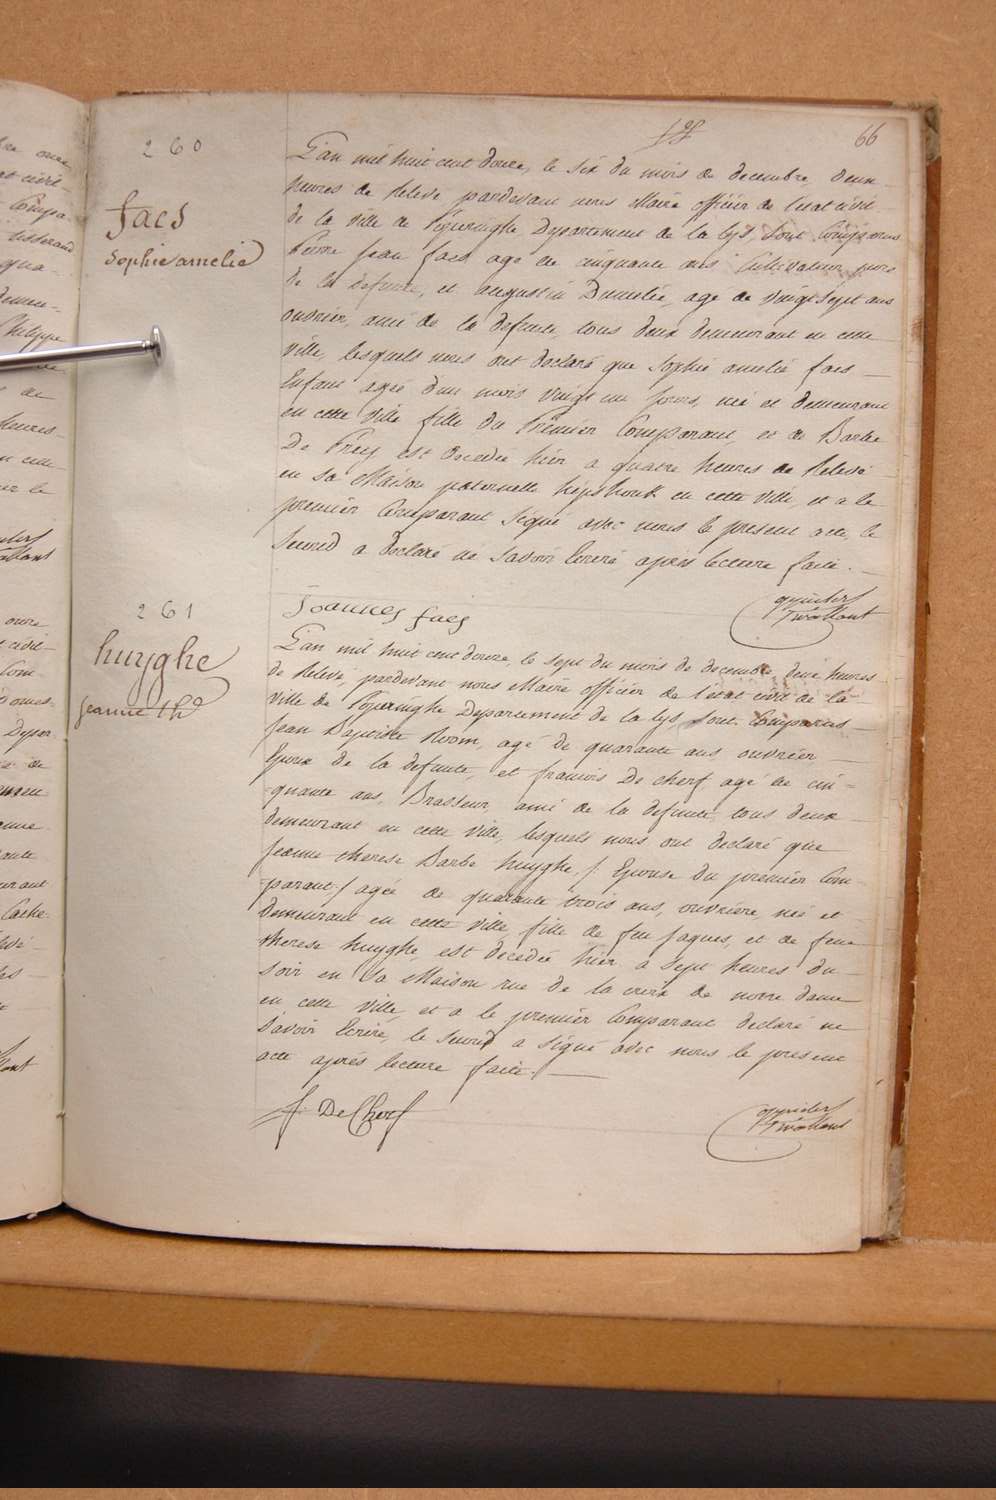 66
260
faes
Sophie amelie
L'an mil huit cent douze, le six du mois de decembre, deux
heures de Relevé pardevant nous Maire officier de l'etat civil
de la ville de Poperinghe Departement de la Lys Sont Comparus
Pierre Jean faes agé de cinquante ans Cultivateur, pere
de la defunte, et augustin Dumelie, agé de vingt sept ans
ouvrier, ami de la defunte tous deux demeurant en cette
ville, lesquels nous ont declaré que Sophie amelie faes
Enfant agée d'un mois vingt un jours, née et demeurant
en cette ville fille du Premier Comparant, et de Barbe
De Prey est decedée hier a quatre heures de Relevé
en sa Maison paternelle en cette ville, et a le
premier Comparant Signé avec nous le present acte, le
Second a declaré ne savoir Ecrire après lecture faite.
Joannes faes
261
huyghe
Jeanne Th
L'an mil huit cent douze, le sept du mois de decembre, deux heures
de Relevé, pardevant nous Maire officier de l'état civil de la
ville de Poperinghe Departement de la Lys, Sont Comparus
Jean Baptiste Room, agé de quarante ans ouvrier
Epoux de la defunte, et francois De Cherf agé de cin-
quante ans, Brasseur ami de la defunte tous deux
demeurant en cette ville, lesquels nous ont declaré que
Jeanne therese Barbe huyghe, /: Epouse du premier Com
parant:/ agée de quarante trois ans, ouvrière, née et
Demeurant en cette ville, fille de feu Jaques, et de feue
therese huyghe, est decedée hier, a sept heures du
soir en sa Maison rue de la croix de notre dame
en cette ville, et a le premier Comparant declaré ne
Savoir Ecrire, le Second a Signé avec nous le present
acte après lecture faite.
f. De Cherf